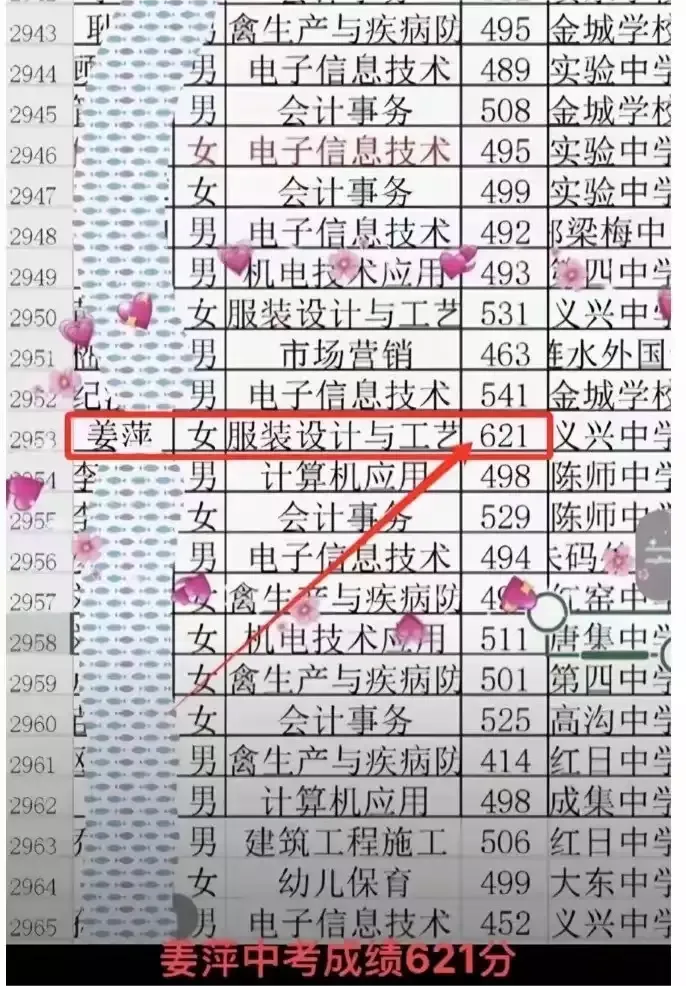 2943 男 禽生产与疾病防 495 金城学校
2944 男 电子信息技术 489 实验中学
2945 男 会计事务 508 金城学校
2946 女 电子信息技术 495 实验中学
2947 女 会计事务 499 实验中学
2948 男 电子信息技术 492 郑梁梅中
2949 男 机电技术应用 493 第四中学
2950 女 服装设计与工艺 531 义兴中学
2951 男 市场营销 463 涟水外国
2952 纪 男 电子信息技术 541 金城学校
2953 姜萍 女 服装设计与工艺 621 义兴中学
2954 李 男 计算机应用 498 陈师中学
2955 女 会计事务 529 陈师中学
2956 男 电子信息技术 494
2957 女 禽生产与疾病防 红窑中
2958 女 机电技术应用 511 唐集中学
2959 女 禽生产与疾病防 501 第四中学
2960 女 会计事务 525 高沟中学
2961 男 禽生产与疾病防 414 红日中学
2962 男 计算机应用 498 成集中学
2963 男 建筑工程施工 506 红日中学
2964 女 幼儿保育 499 大东中学
2965 男 电子信息技术 452 义兴中学
姜萍中考成绩621分